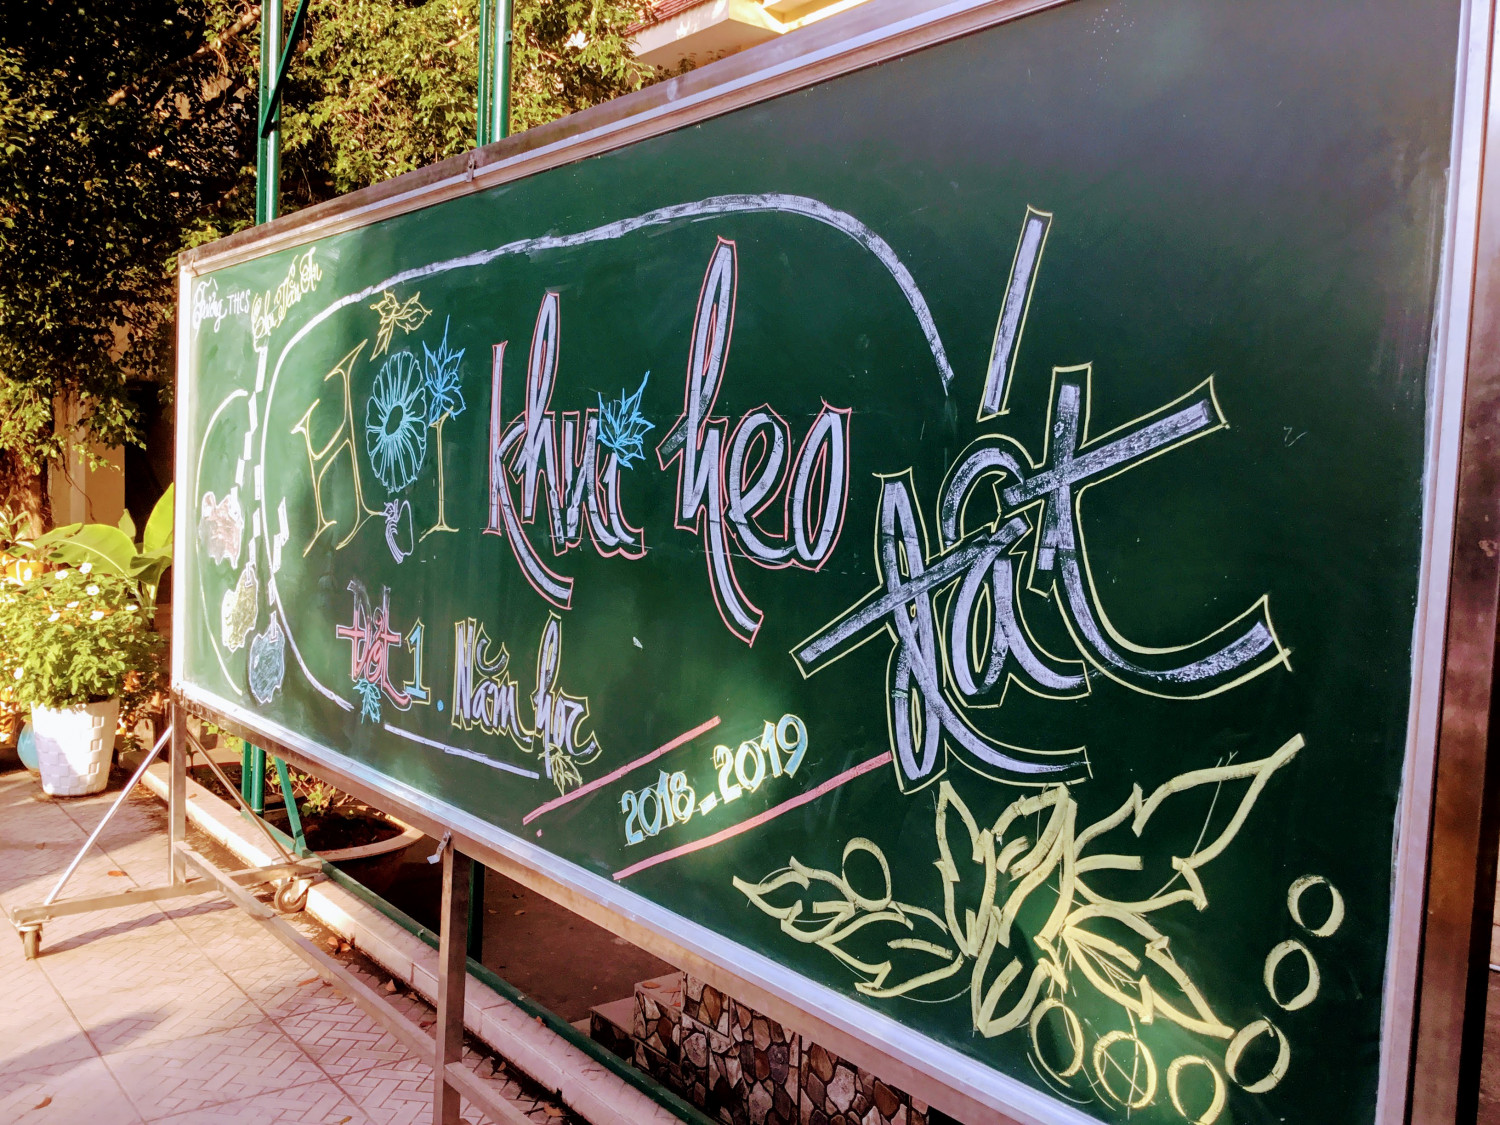 Trường THCS
Chu Văn An
HỘI khui heo đất
Đợt 1. Năm học
2018-2019